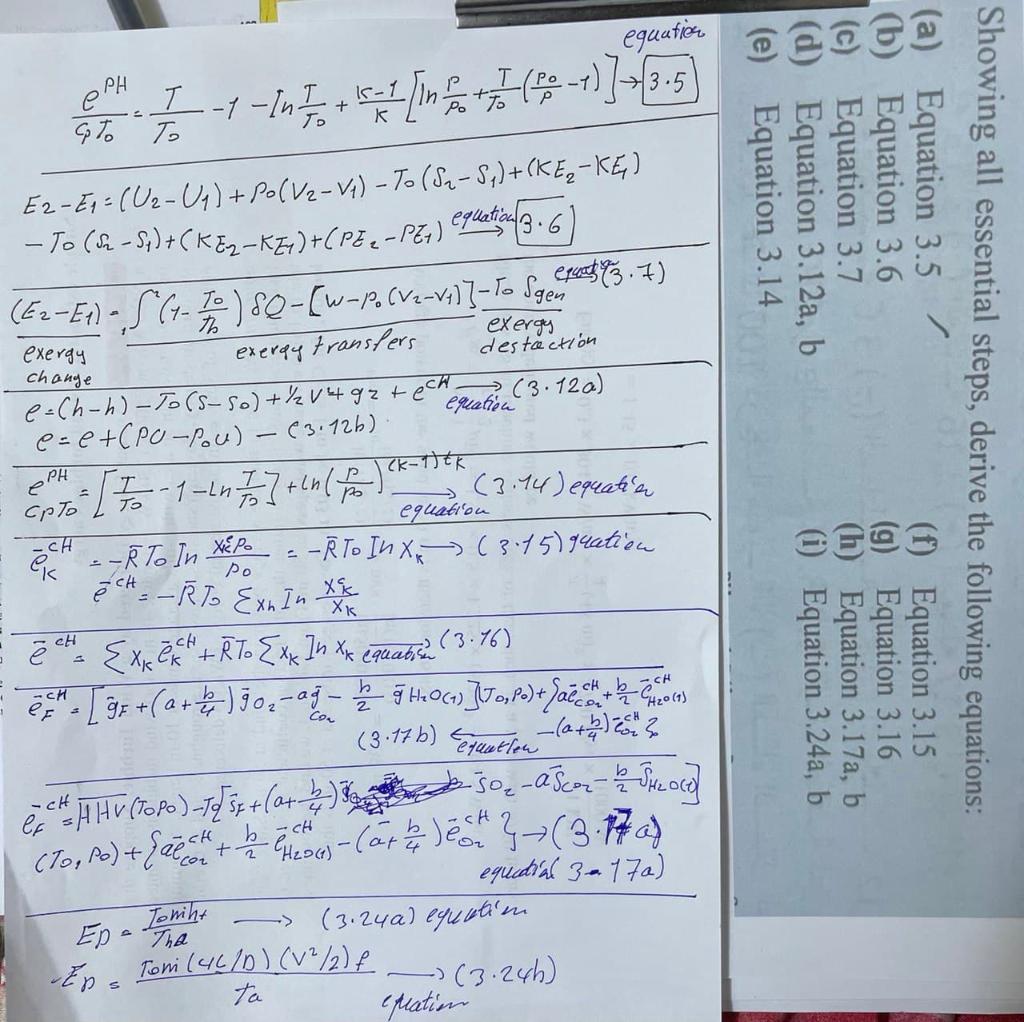 equation
e^PH / CpT₀ = T/T₀ - 1 - ln T/T₀ + K-1/K [ln P/P₀ + T/T₀ (P₀/P - 1)] → 3.5
E₂-E₁ = (U₂-U₁) + P₀(V₂-V₁) - T₀(S₂-S₁) + (KE₂-KE₁)
- T₀(S₂-S₁) + (KE₂-KE₁) + (PE₂-PE₁) equation → 3.6
(E₂-E₁) = ₁∫² (1 - T₀/Tb) δQ - [W-P₀(V₂-V₁)] - T₀ Sgen equation (3.7)
exergy change
exergy transfers
exergy destaction
e = (h-h) - T₀(S-S₀) + 1/2 V² + gz + e^CH equation → (3.12a)
e = e + (PU-P₀U) - (3.12b)
e^PH / CPT₀ = [T/T₀ - 1 - ln T/T₀] + ln (P/P₀)^(K-1)/K equation → (3.14) equation
ē_K^CH = -R̄T₀ In X_K^e P₀ / P₀ = -R̄T₀ In X_K → (3.15) quation
ē^CH = -R̄T₀ Σxₕ In X_K^e / X_K
ē^CH = Σ X_K ē_K^CH + R̄T₀ Σ X_K In X_K equation → (3.16)
ē_F^CH = [ḡ_F + (a+b/4) ḡO₂ - aḡ CO₂ - b/2 ḡH₂O(1)](T₀,P₀) + {aē_CO₂^CH + b/2 ē_H₂O(1)^CH
(3.17b) ← equation - (a+b/4) ē_O₂^CH }
ē_F^CH = HHV(T₀P₀) - T₀[s̄_F + (a+b/4) s̄O₂ - as̄CO₂ - b/2 s̄H₂O(1)]
(T₀,P₀) + {aē_CO₂^CH + b/2 ē_H₂O(1)^CH - (a+b/4) ē_O₂^CH } → (3.17a)
equation 3-17a)
E_D = T₀ṁh₊ / Tha → (3.24a) equation
E_D = T₀ṁ(4L/D)(V²/2)f / Ta → (3.24b)
equation
Showing all essential steps, derive the following equations:
(a) Equation 3.5
(b) Equation 3.6
(c) Equation 3.7
(d) Equation 3.12a, b
(e) Equation 3.14
(f) Equation 3.15
(g) Equation 3.16
(h) Equation 3.17a, b
(i) Equation 3.24a, b